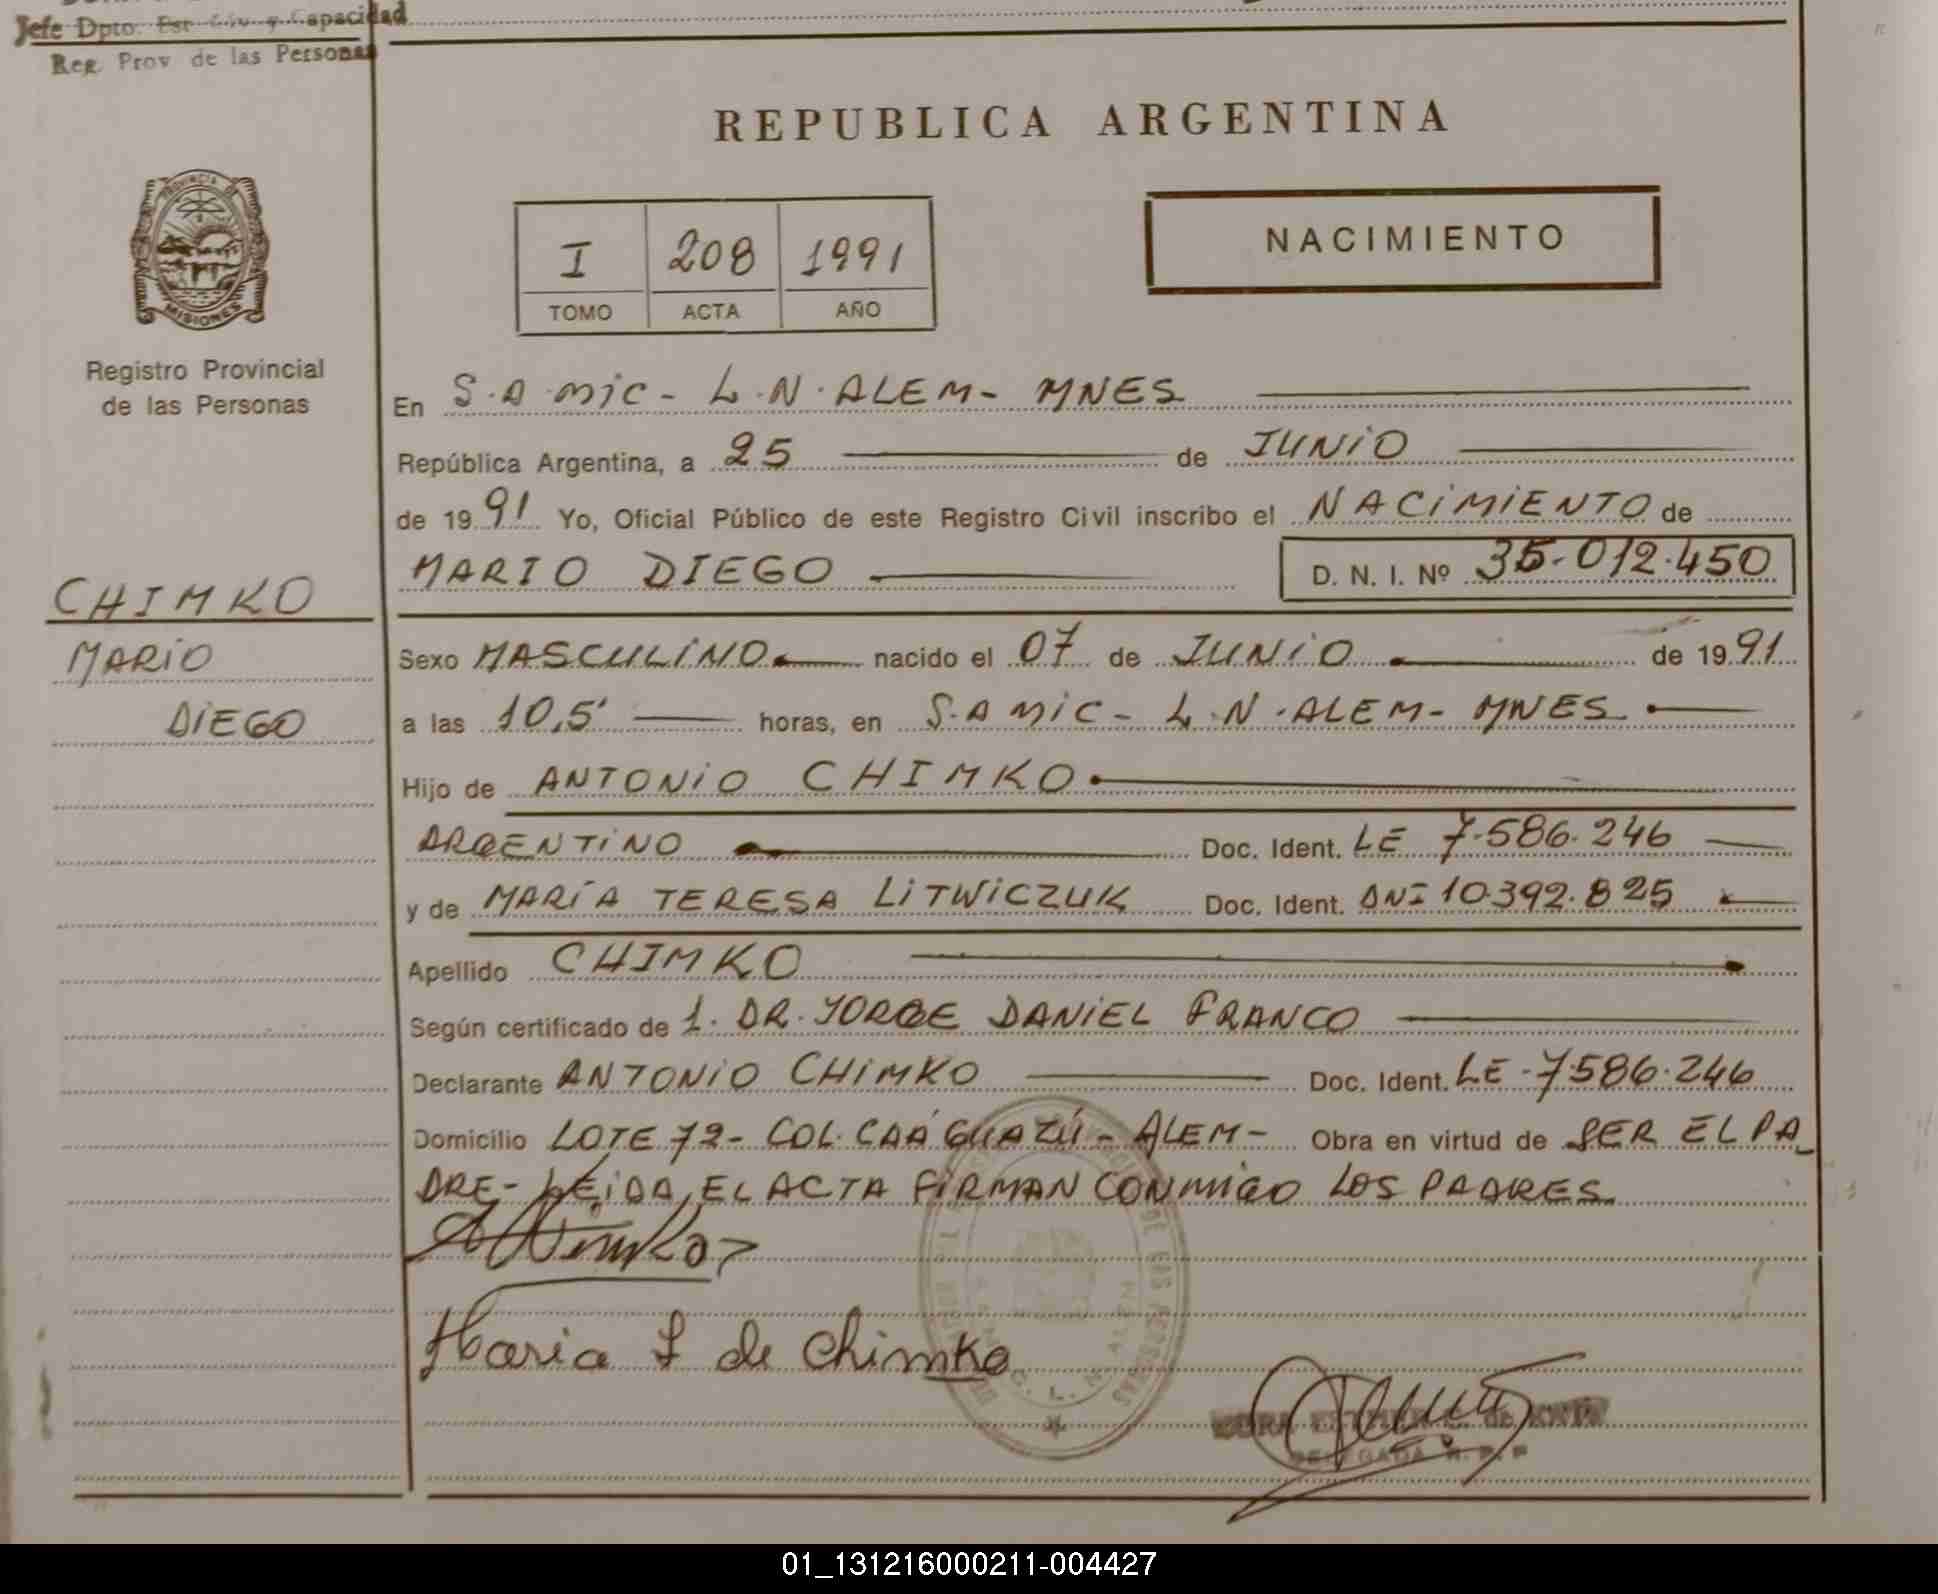 Jefe Dpto. Est Civ y Capacidad
Reg. Prov de las Personas
REPUBLICA ARGENTINA
PROVINCIA DE
MISIONES
Registro Provincial
de las Personas
I 208 1991
TOMO ACTA AÑO
NACIMIENTO
En S.A.MIC - L.N.ALEM - MNES
República Argentina, a 25 de JUNIO
de 1991 Yo, Oficial Público de este Registro Civil inscribo el NACIMIENTO de
MARIO DIEGO D. N. I. Nº 35.012.450
CHIMKO
MARIO
DIEGO
Sexo MASCULINO nacido el 07 de JUNIO de 1991
a las 10,5' horas, en S.A MIC - L.N.ALEM - MNES
Hijo de ANTONIO CHIMKO
ARGENTINO Doc. Ident. LE 7.586.246
y de MARÍA TERESA LITWICZUK Doc. Ident. DNI 10.392.825
Apellido CHIMKO
Según certificado de 1. DR. JORGE DANIEL FRANCO
Declarante ANTONIO CHIMKO Doc. Ident. LE - 7586.246
Domicilio LOTE 72 - COL. CAÁ GUAZÚ - ALEM - Obra en virtud de SER EL PA_
DRE - LEIDA, EL ACTA FIRMAN CONMIGO LOS PADRES
Maria L de Chimko
DELEGADA R. P. P
01_131216000211-004427